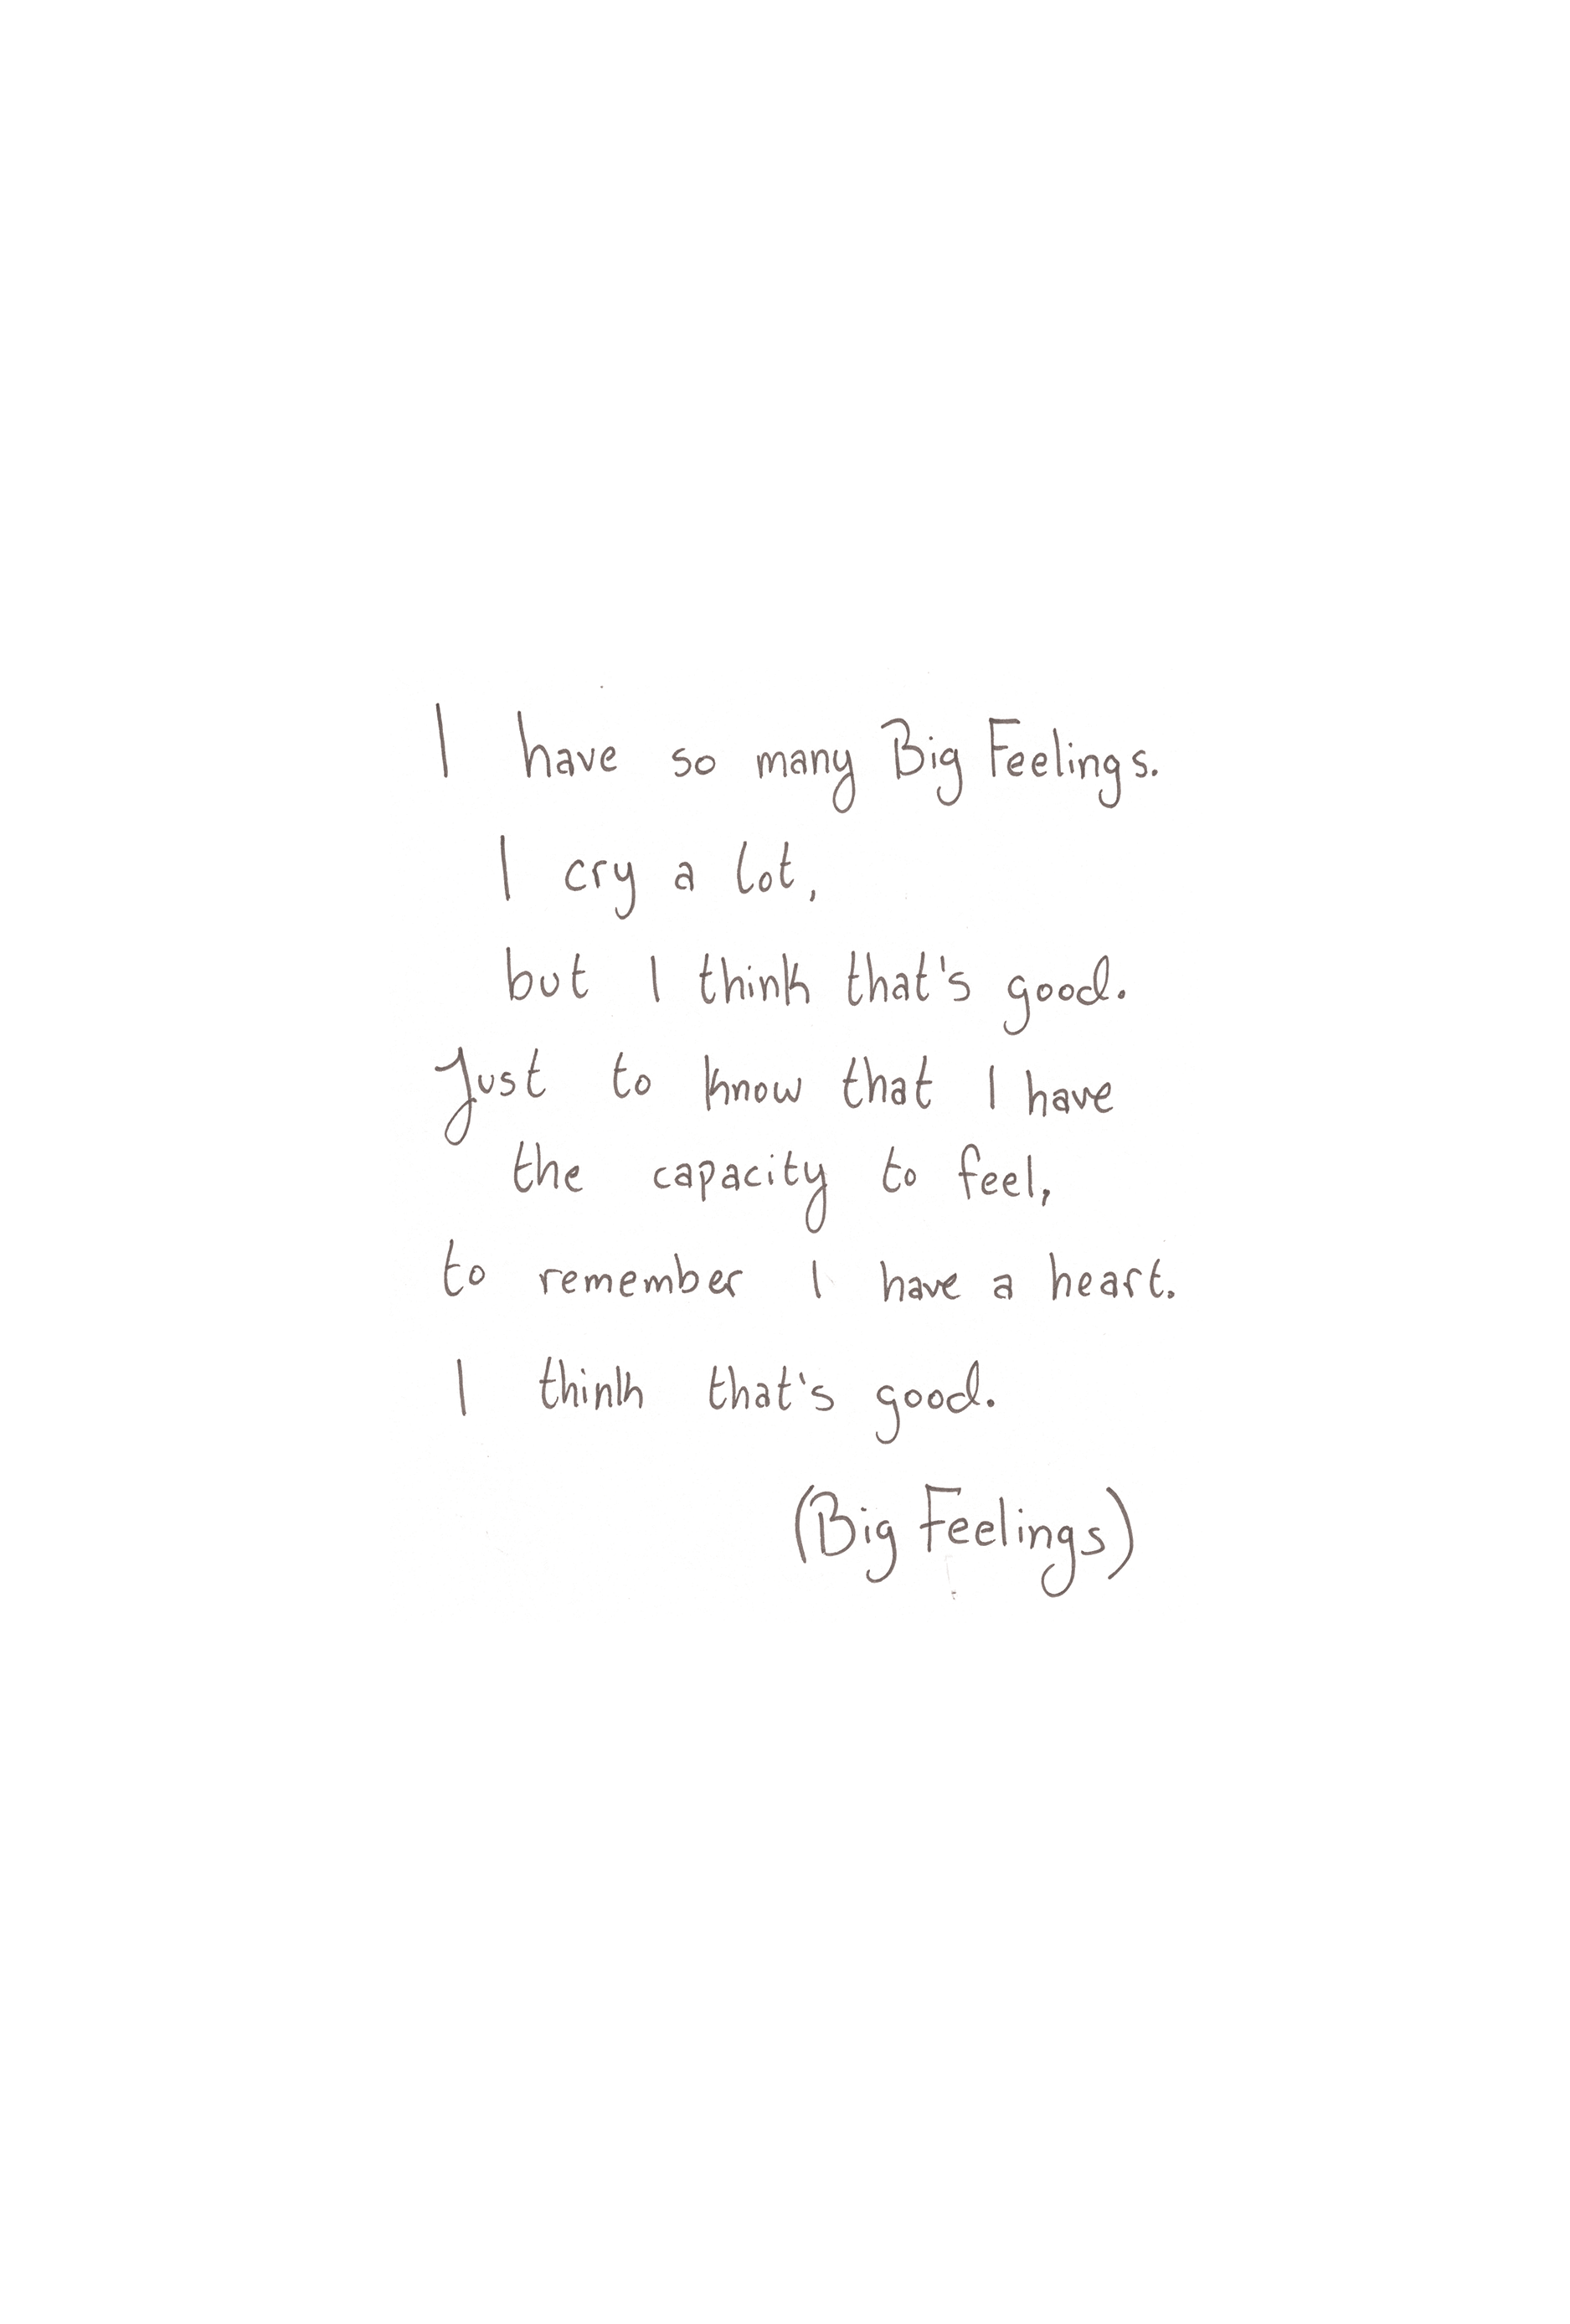 I have so many Big Feelings.
I cry a lot,
but I think that's good.
Just to know that I have
the capacity to feel,
to remember I have a heart.
I think that's good.
(Big Feelings)